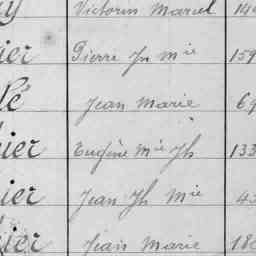 Victorin Marcel 14
ier Pierre Jn Mie 159
lé Jean Marie 69
ier Eugène Mie Jh 133
ier Jean Jh Mie 43
ier Jean Marie 18